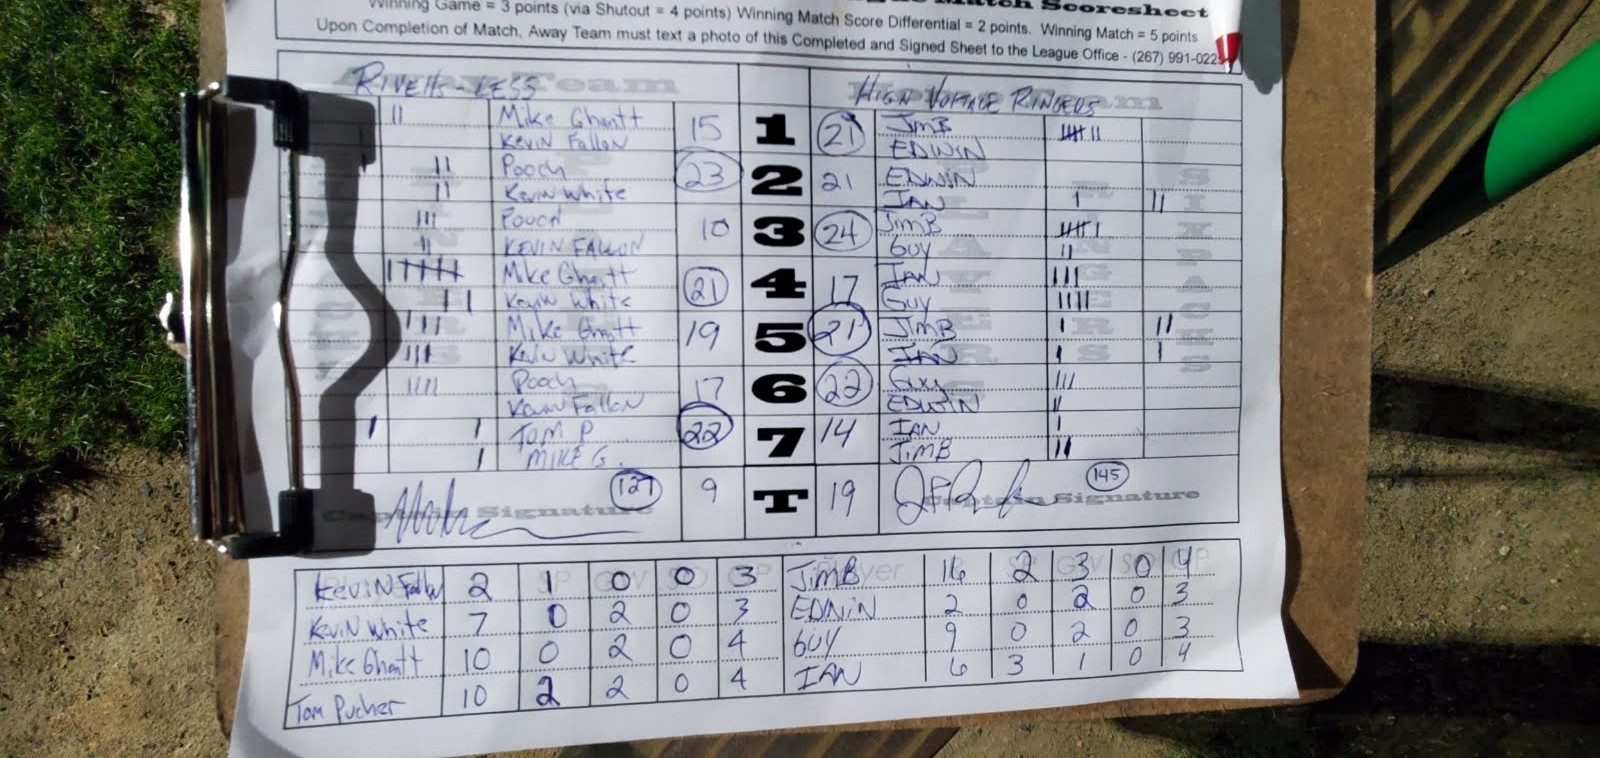 Match Scoresheet
Winning Game = 3 points (via Shutout = 4 points) Winning Match Score Differential = 2 points. Winning Match = 5 points
Upon Completion of Match, Away Team must text a photo of this Completed and Signed Sheet to the League Office - (267) 991-022
RIVETTS-LESS HIGH VOLTAGE RINGERS
Mike Ghantt 15 1 21 JimB
Kevin Fallon EDWIN
Pooch 23 2 21 EDWIN
Kevin White IAN
Pooch 10 3 24 JimB
KEVIN FALLON GUY
Mike Ghantt 21 4 17 IAN
Kevin White GUY
Mike Ghantt 19 5 21 JimB
Kevin White IAN
Pooch 17 6 22 Guy
Kevin Fallon EDWIN
Tom P 22 7 14 IAN
MIKE G. JimB
127 9 T 19 145
Captain Signature Captain Signature
Kevin Fallon 2 1 0 0 3 JimB 16 2 3 0 4
Kevin White 7 0 2 0 3 EDWIN 2 0 2 0 3
Mike Ghantt 10 0 2 0 4 GUY 9 0 2 0 3
Tom Pucher 10 2 2 0 4 IAN 6 3 1 0 4